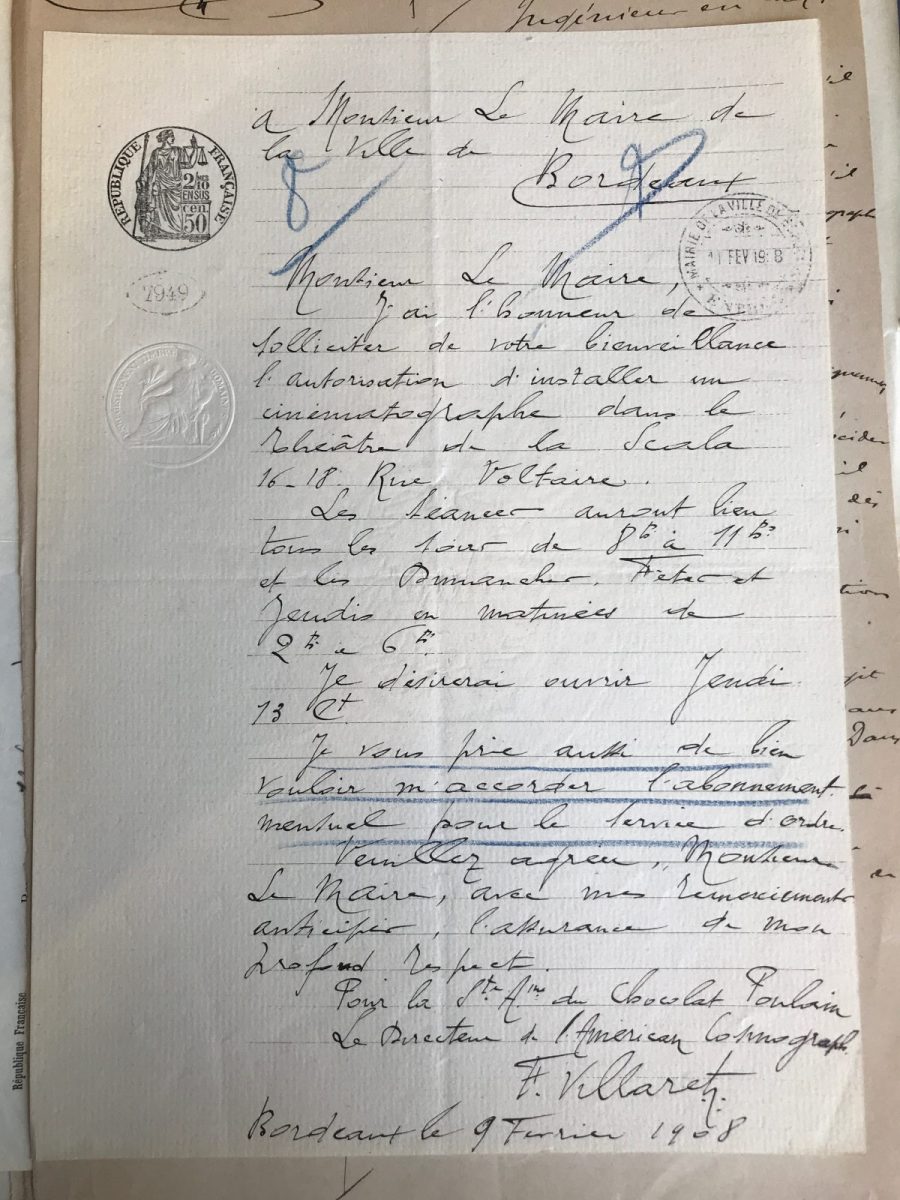 Ingénieur en
A Monsieur Le Maire de
la Ville de
Bordeaux
RÉPUBLIQUE FRANÇAISE
2/10
EN SUS
50 cen.
7949
MAIRIE DE LA VILLE DE
11 FEV 19 8
Monsieur Le Maire,
J'ai l'honneur de
solliciter de votre bienveillance
l'autorisation d'installer un
cinématographe dans le
théâtre de la Scala
16-18 Rue Voltaire.
Les séances auront lieu
tous les soirs de 8h à 11hs
et les Dimanches, Fêtes et
Jeudis en matinées de
2h à 6h
Je désirerai ouvrir Jeudi
13 Ct
Je vous prie aussi de bien
vouloir m'accorder l'abonnement
mensuel pour le service d'ordre
Veuillez agréer, Monsieur
Le Maire, avec mes remerciements
anticipés, l'assurance de mon
profond respect.
Pour la Sté Ame du Chocolat Poulain
Le Directeur de l'American Cosmograph
F. Villaret
Bordeaux le 9 Fevrier 1908
République Française
Dans